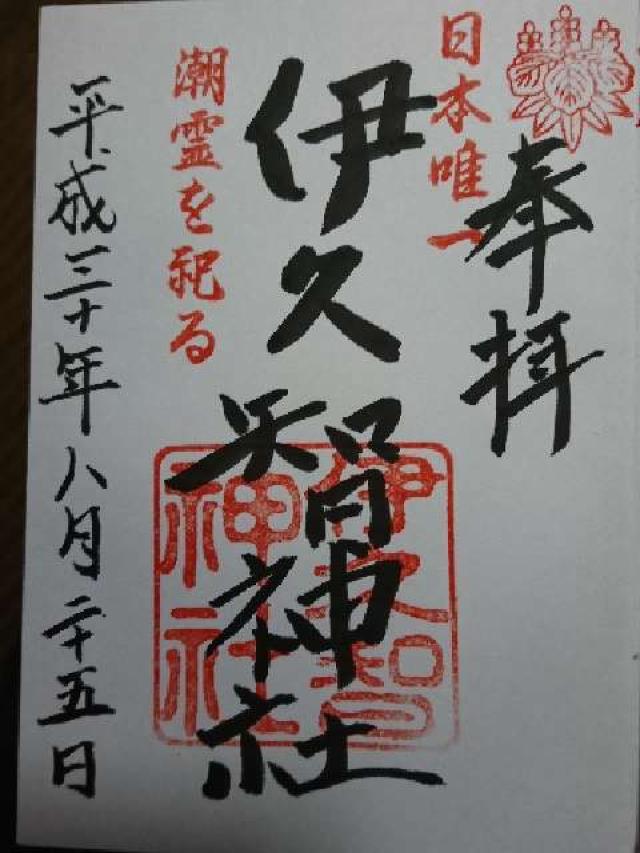 奉拝
日本唯一
伊久智神社
伊久智
神社
潮霊を祀る
平成三十年八月二十五日